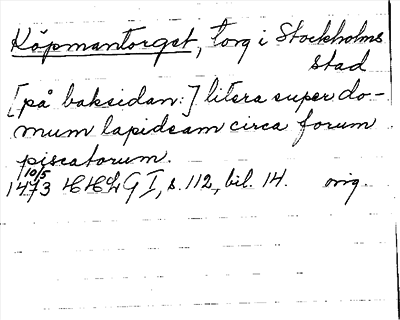 Köpmantorget, torg i Stockholms
stad
[på baksidan:] litera super do-
mum lapideam circa forum
piscatorum.
10/5
1473 G I, s. 112, bil. 14. orig.